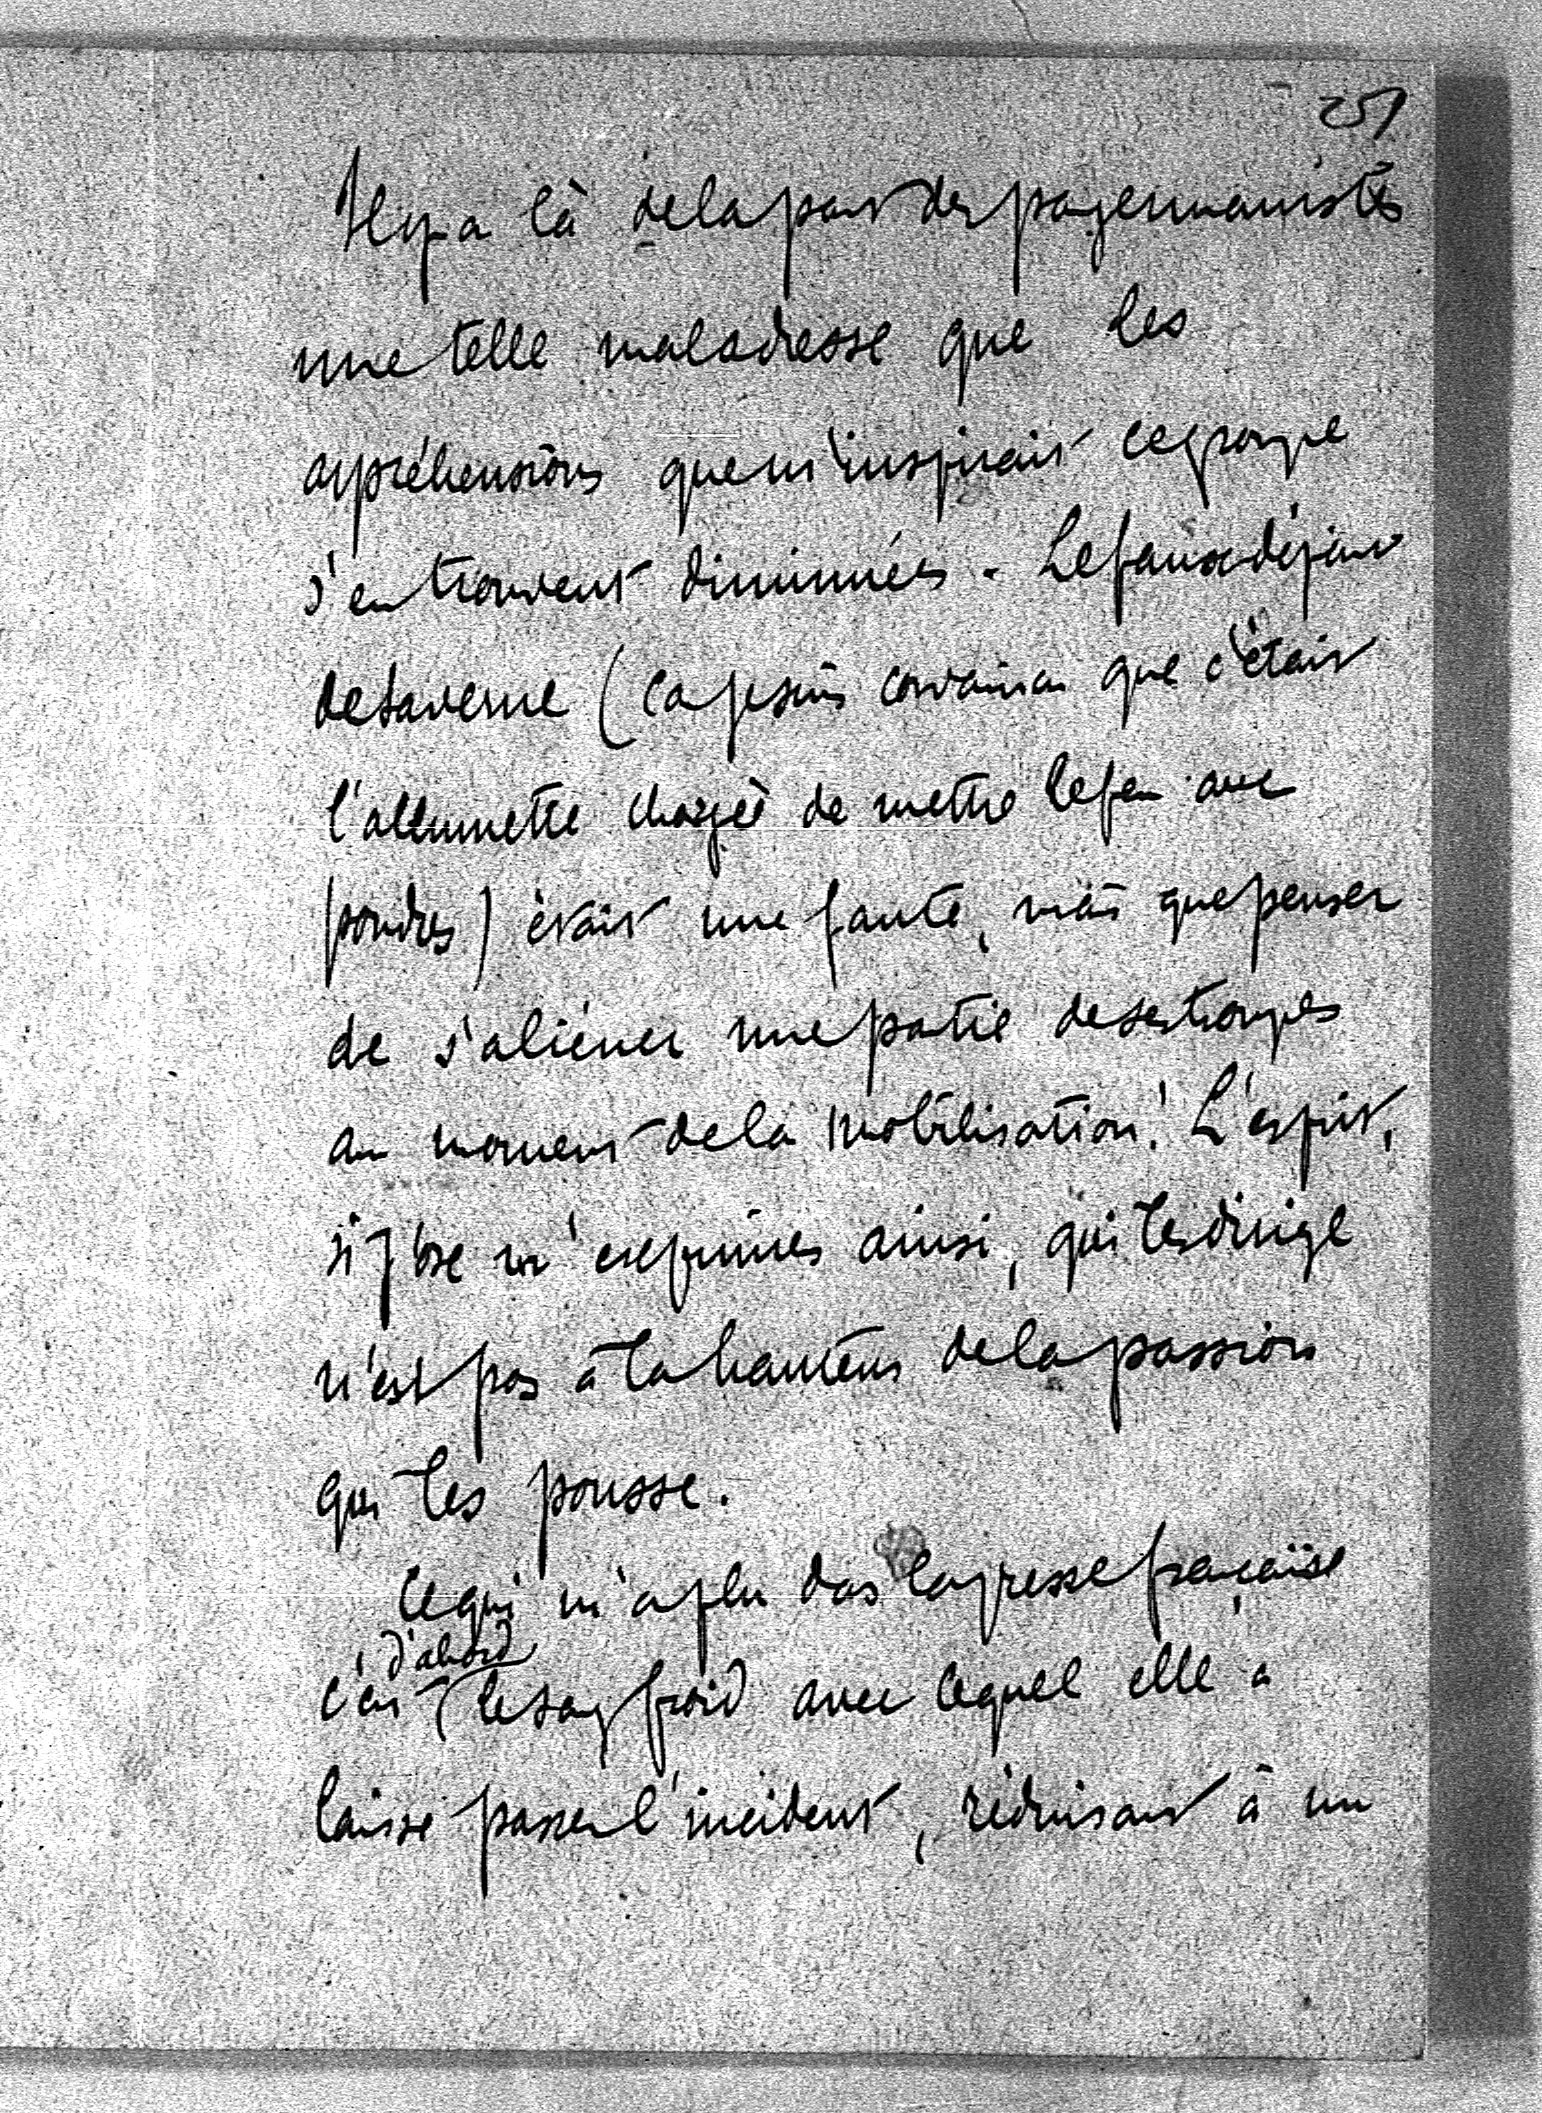 251
Il y a là de la part des pangermanistes
une telle maladresse que les
appréhensions que m'inspirait ce groupe
s'en trouvent diminuées. Le faux départ
de Saverne (car je suis convaincu que c'était
l'allumette chargée de mettre le feu aux
poudres) était une faute, mais que penser
de s'aliéner une partie de ses troupes
au moment de la mobilisation! L'esprit,
si j'ose m'exprimer ainsi, qui les dirige
n'est pas à la hauteur de la passion
qui les pousse.
Ce qui m'a plu dans la presse française
d'abord
c'est le sang froid avec lequel elle a
laissé passer l'incident, réduisant à un